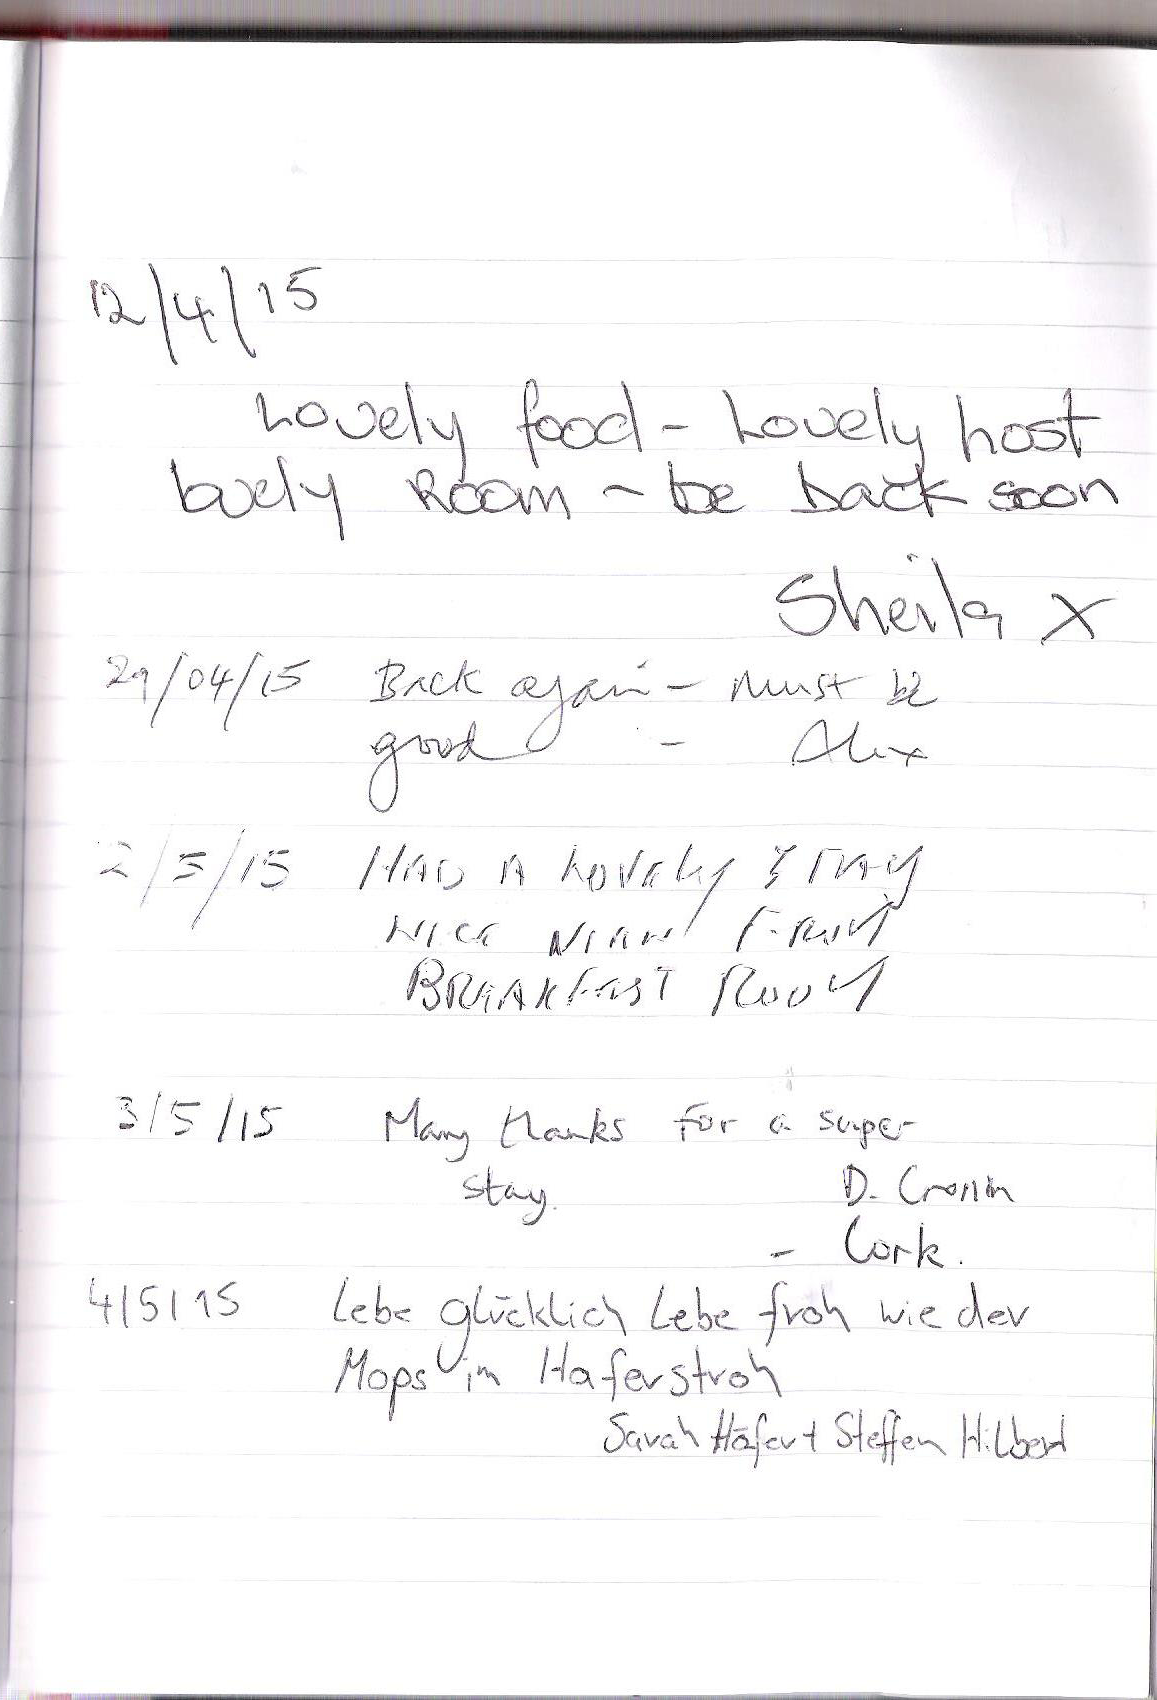 12/4/15
Lovely food - Lovely host
lovely Room - be back soon
Sheila X
29/04/15 Back again - must be
good - Alex
2/5/15 HAD A LOVELY STAY
NICE VIEW FROM
BREAKFAST ROOM
3/5/15 Many thanks For a super
stay. D. Cronin
- Cork.
4/5/15 Lebe glücklich Lebe froh wie der
Mops im Haferstroh
Sarah Häfer + Steffen Hilbert